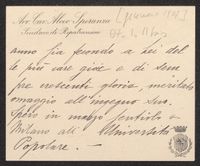 Avv. Cav. Alceo Speranza
Sindaco di Ripatransone
anno sia fecondo a Lei del
le più care gioie e di sem
pre crescenti gloria, meritato
omaggio all'ingegno Suo.
Spero in marzo sentirla a
Milano all' Università
Popolare. —